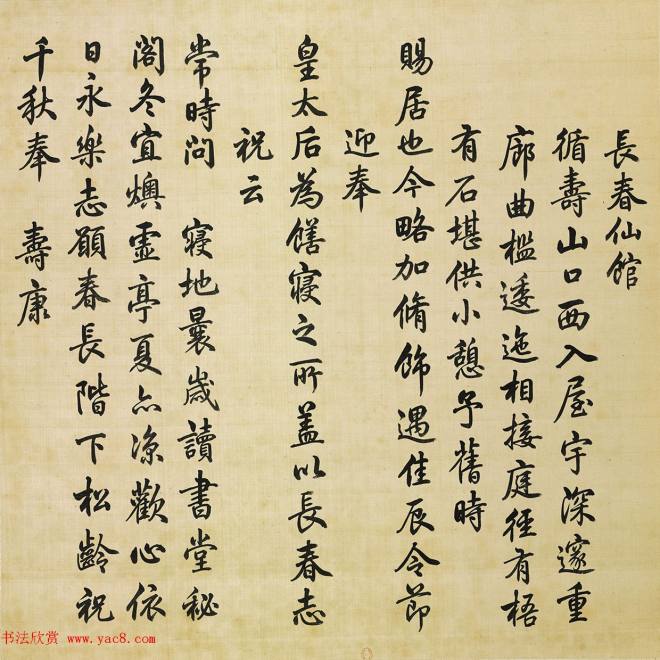 長春仙館
循壽山口西入屋宇深邃重
廊曲檻逶迤相接庭徑有梧
有石堪供小憩予舊時
賜居也今略加脩飾遇佳辰令節
迎奉
皇太后為饍寢之所蓋以長春志
祝云
常時問 寢地曩歲讀書堂秘
閣冬宜燠虛亭夏亦涼歡心依
日永樂志願春長階下松齡祝
千秋奉 壽康
书法欣赏 www.yac8.com